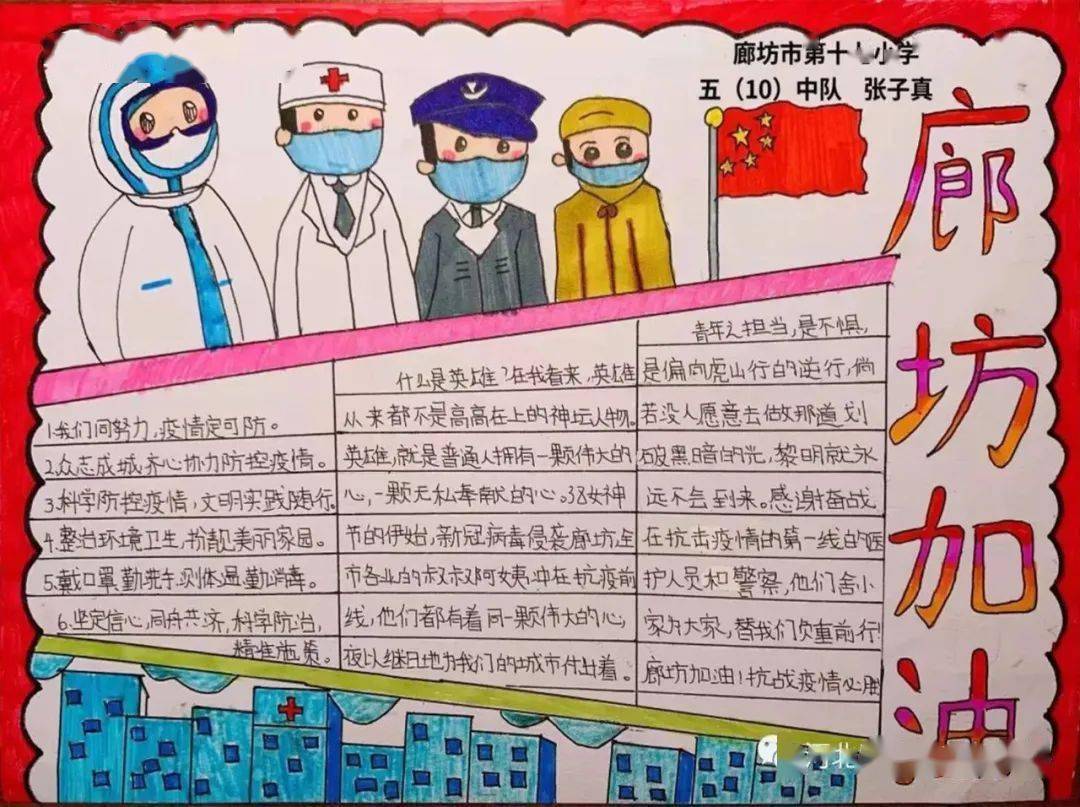 廊坊市第十八小学
五（10）中队 张子真
廊坊加油
1.我们同努力,疫情定可防。
2.众志成城齐心协力防控疫情。
3.科学防控疫情,文明实践随行。
4.整治环境卫生,扮靓美丽家园。
5.戴口罩勤洗手,测体温勤消毒。
6.坚定信心,同舟共济,科学防治,
精准施策。
什么是英雄?在我看来,英雄
从来都不是高高在上的神坛人物。
英雄,就是普通人拥有一颗伟大的
心,一颗无私奉献的心。38女神
节的伊始,新冠病毒侵袭廊坊,全
市各业的叔叔阿姨冲在抗疫前
线,他们都有着同一颗伟大的心,
夜以继日地为我们的城市付出着。
青年之担当,是不惧,
是偏向虎山行的逆行,倘
若没人愿意去做那道划
破黑暗的光,黎明就永
远不会到来。感谢奋战
在抗击疫情的第一线的医
护人员和警察,他们舍小
家为大家,替我们负重前行!
廊坊加油!抗战疫情必胜
河北